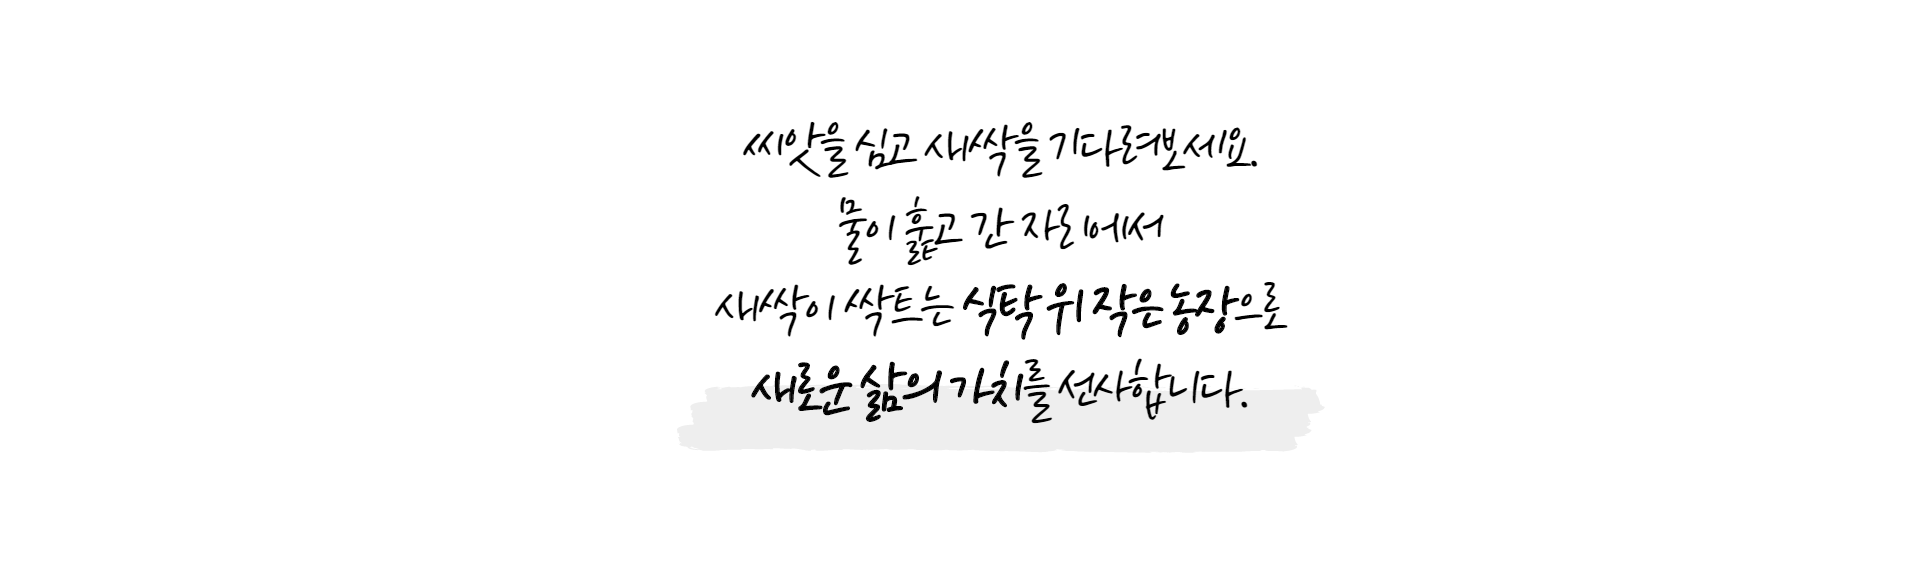 씨앗을 심고 새싹을 기다려보세요.
물이 훑고 간 자리에서
새싹이 싹트는 식탁 위 작은 농장으로
새로운 삶의 가치를 선사합니다.